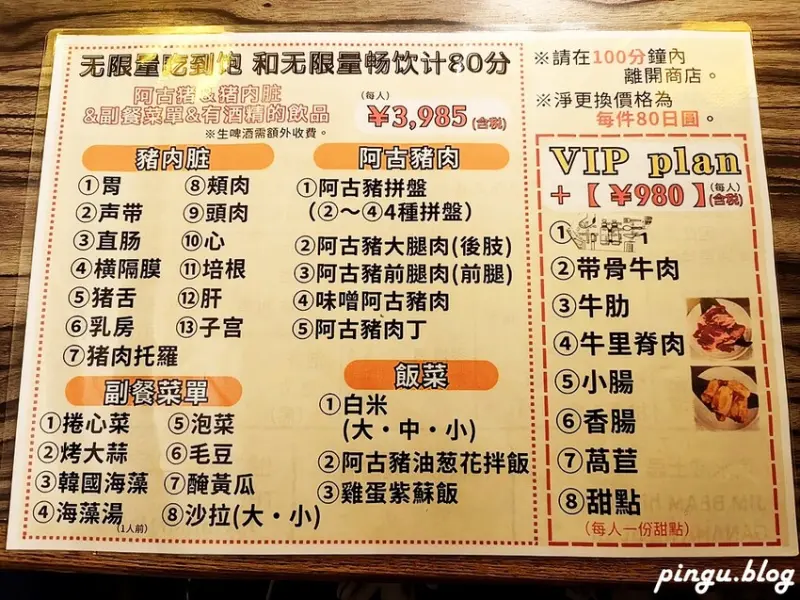 无限量吃到饱 和无限量畅饮计80分
阿古猪 猪内脏
&副餐菜單&有酒精的飲品
※生啤酒需額外收費。
(每人)
¥3,985(含税)
豬內脏
①胃
②声带
③直肠
④横隔膜
⑤猪舌
⑥乳房
⑦猪肉托羅
⑧頰肉
⑨頭肉
⑩心
⑪培根
⑫肝
⑬子宫
副餐菜單
①捲心菜
②烤大蒜
③韓國海藻
④海藻湯
(1人前)
⑤泡菜
⑥毛豆
⑦醃黃瓜
⑧沙拉(大・小)
阿古豬肉
①阿古豬拼盤
(②～④4種拼盤)
②阿古豬大腿肉(後肢)
③阿古豬前腿肉(前腿)
④味噌阿古豬肉
⑤阿古豬肉丁
飯菜
①白米
(大・中・小)
②阿古豬油葱花拌飯
③雞蛋紫蘇飯
※請在100分鐘內
離開商店。
※淨更換價格為
每件80日圓。
VIP plan
+【¥980】(每人)(含税)
①
②带骨牛肉
③牛肋
④牛里脊肉
⑤小腸
⑥香腸
⑦萵苣
⑧甜點
(每人一份甜點)
pingu.blog